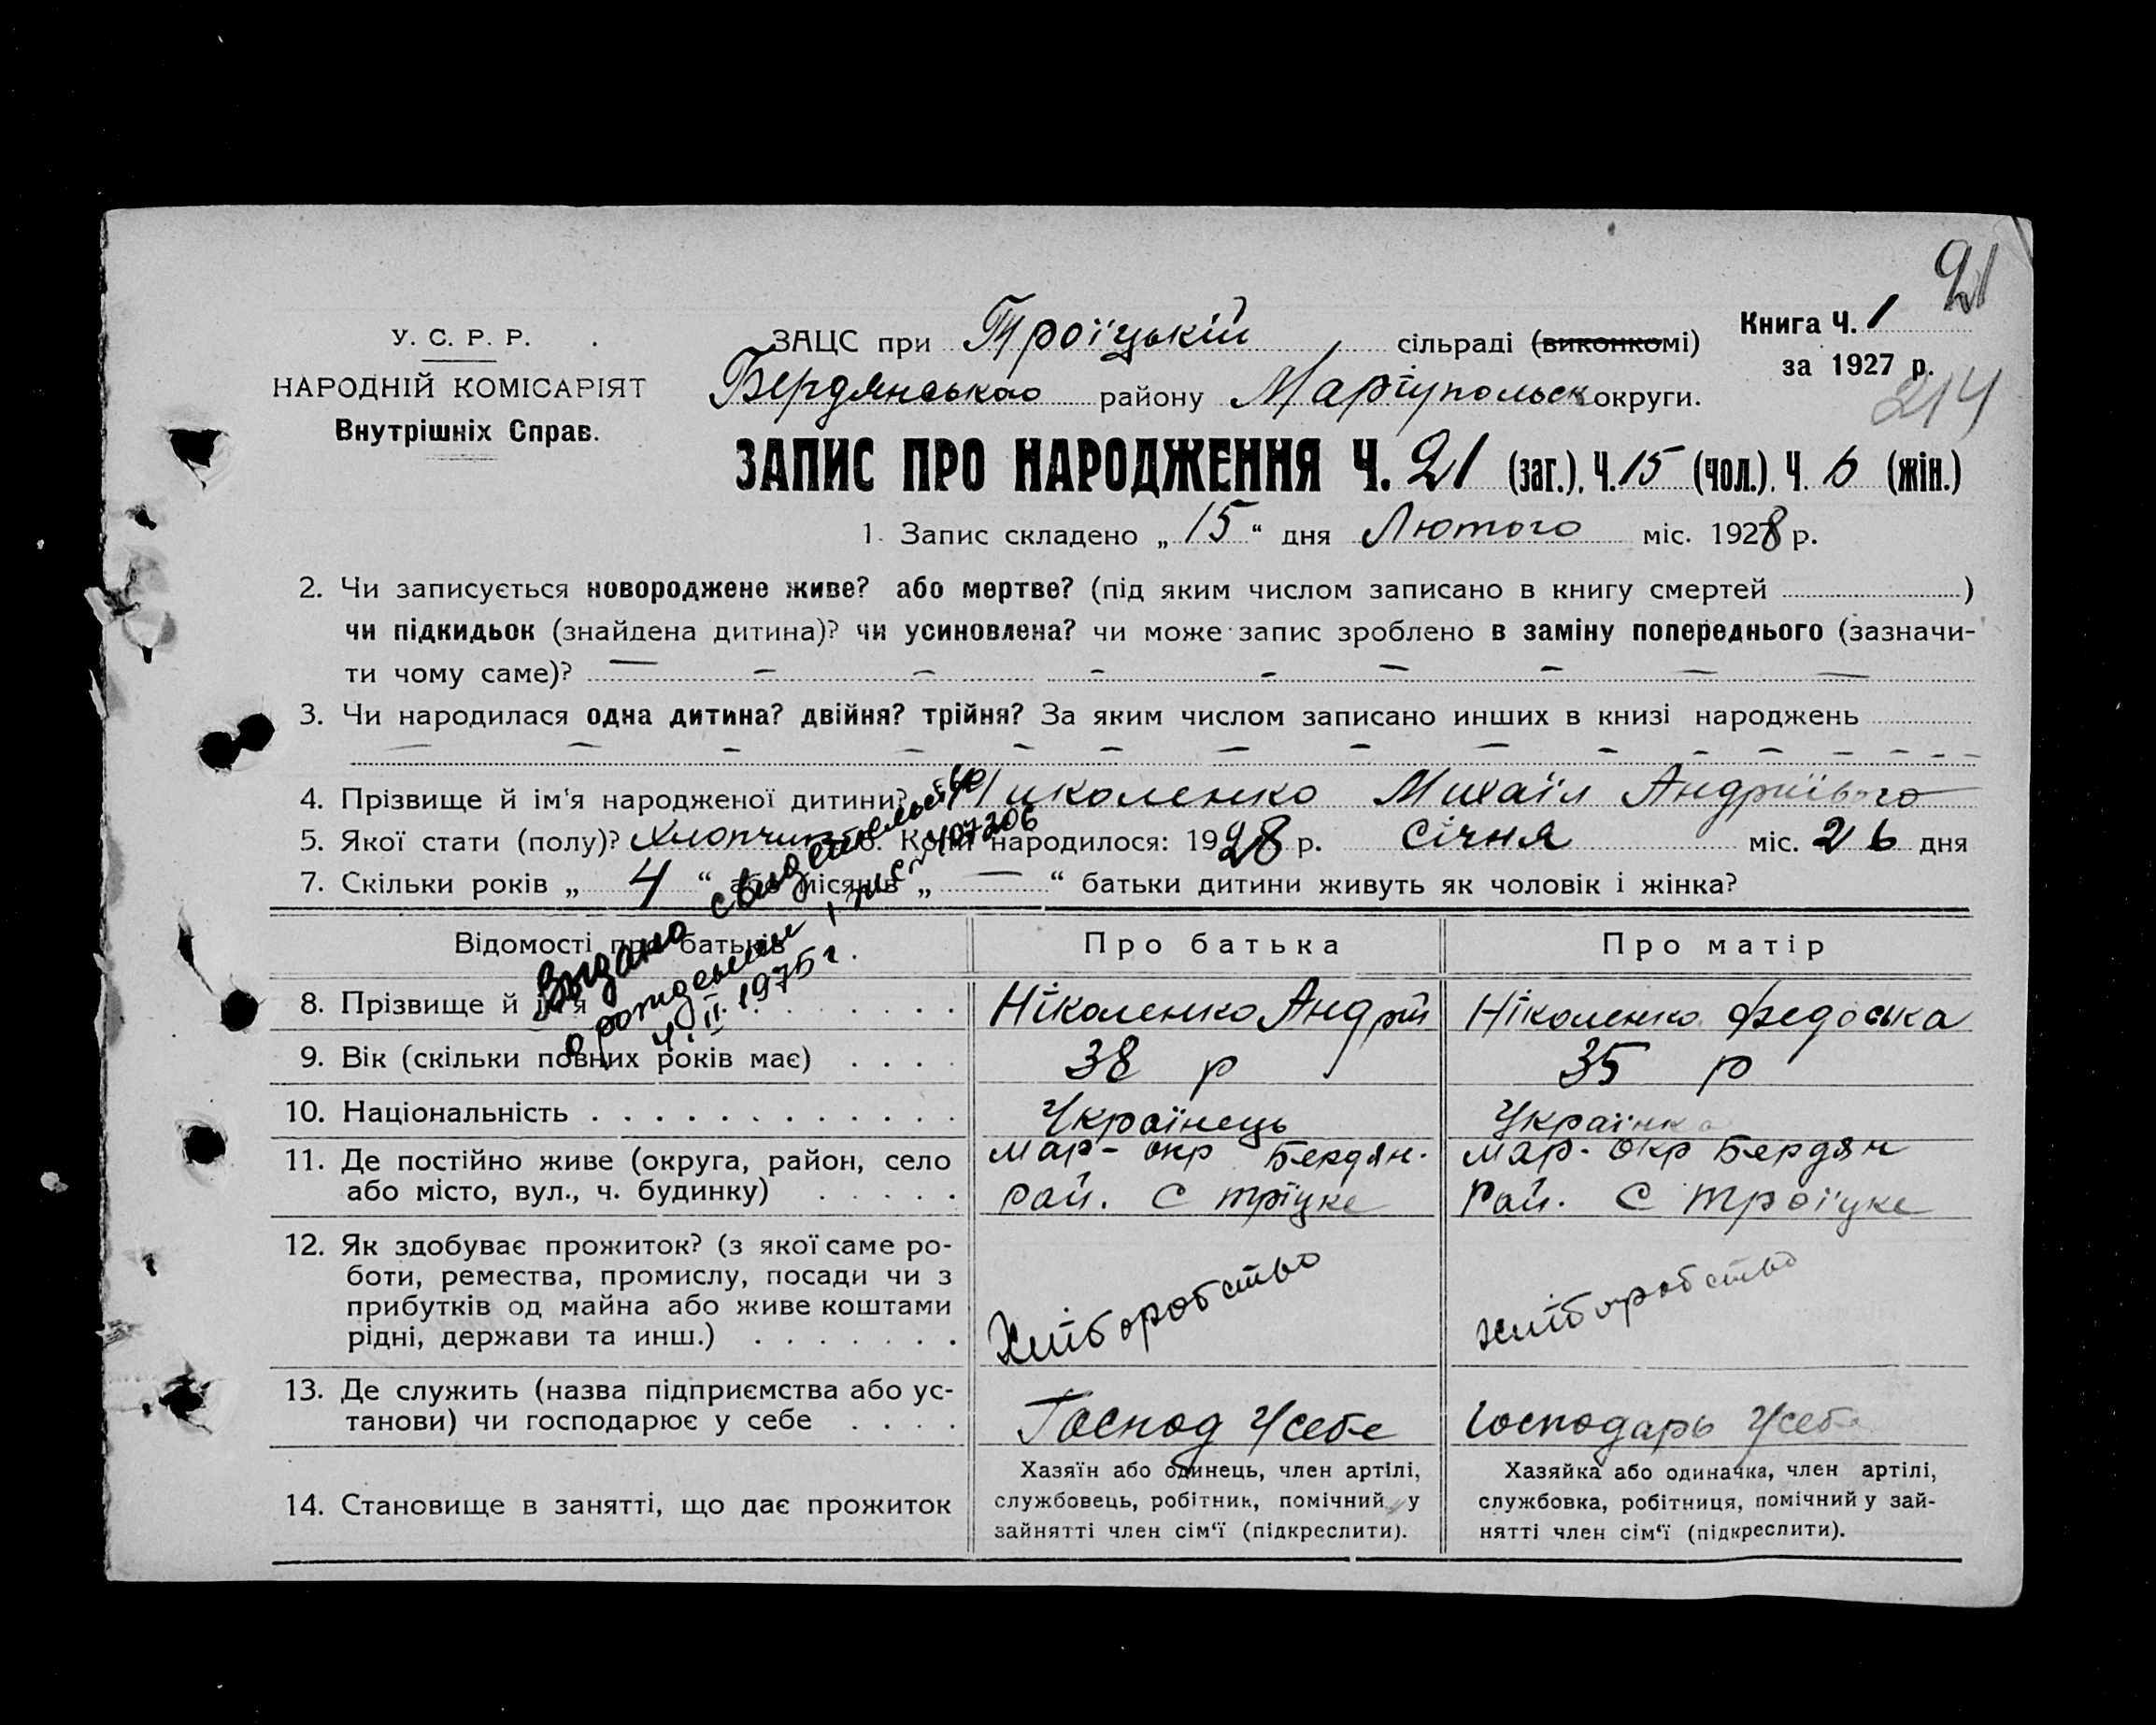 91
У. С. Р. Р.
НАРОДНІЙ КОМІСАРІЯТ
Внутрішніх Справ.
ЗАЦС при Троїцькій сільраді (виконкомі)
Бердянського району Маріупольськ округи.
Книга Ч. 1
за 1927 р.
214
ЗАПИС ПРО НАРОДЖЕННЯ Ч. 21 (заг.), Ч. 15 (чол.), Ч. 6 (жін.)
1. Запис складено „ 15 “ дня Лютого міс. 1928 р.
2. Чи записується новороджене живе? або мертве? (під яким числом записано в книгу смертей )
чи підкидьок (знайдена дитина)? чи усиновлена? чи може запис зроблено в заміну попереднього (зазначи-
ти чому саме)? — – – – – – – – —
3. Чи народилася одна дитина? двійня? трійня? За яким числом записано инших в книзі народжень
— – – – – – – – – – – – – – –
4. Прізвище й ім'я народженої дитини? Николенко Михаїл Андриївого
5. Якої стати (полу)? Хлопчик 6. Коли народилося: 1928 р. Січня міс. 26 дня
7. Скільки років „ 4 “ або місяців „ — “ батьки дитини живуть як чоловік і жінка?
Выдано свидетельство
о рождении 407206
4.II.1975 г.
Відомості про батьків Про батька Про матір
8. Прізвище й ім'я . . . . . . . Ніколенко Андрій Ніколенко Федоська
9. Вік (скільки повних років має) . . . . 38 р 35 р
10. Національність . . . . . . . . . . . . . Українець Українка
11. Де постійно живе (округа, район, село Мар- окр Бердян. Мар- окр Бердян
або місто, вул., ч. будинку) . . . . . Рай. С тріцке Рай. С троїцке
12. Як здобуває прожиток? (з якої саме ро-
боти, ремества, промислу, посади чи з
прибутків од майна або живе коштами
рідні, держави та инш.) . . . . . . . Хліборобство хліборобство
13. Де служить (назва підприємства або ус-
танови) чи господарює у себе . . . . Господ Усебе Господарь Усебе
14. Становище в занятті, що дає прожиток
Хазяїн або одинець, член артілі,
службовець, робітник, помічний у
зайнятті член сім‘ї (підкреслити).
Хазяйка або одиначка, член артілі,
службовка, робітниця, помічний у зай-
нятті член сім‘ї (підкреслити).